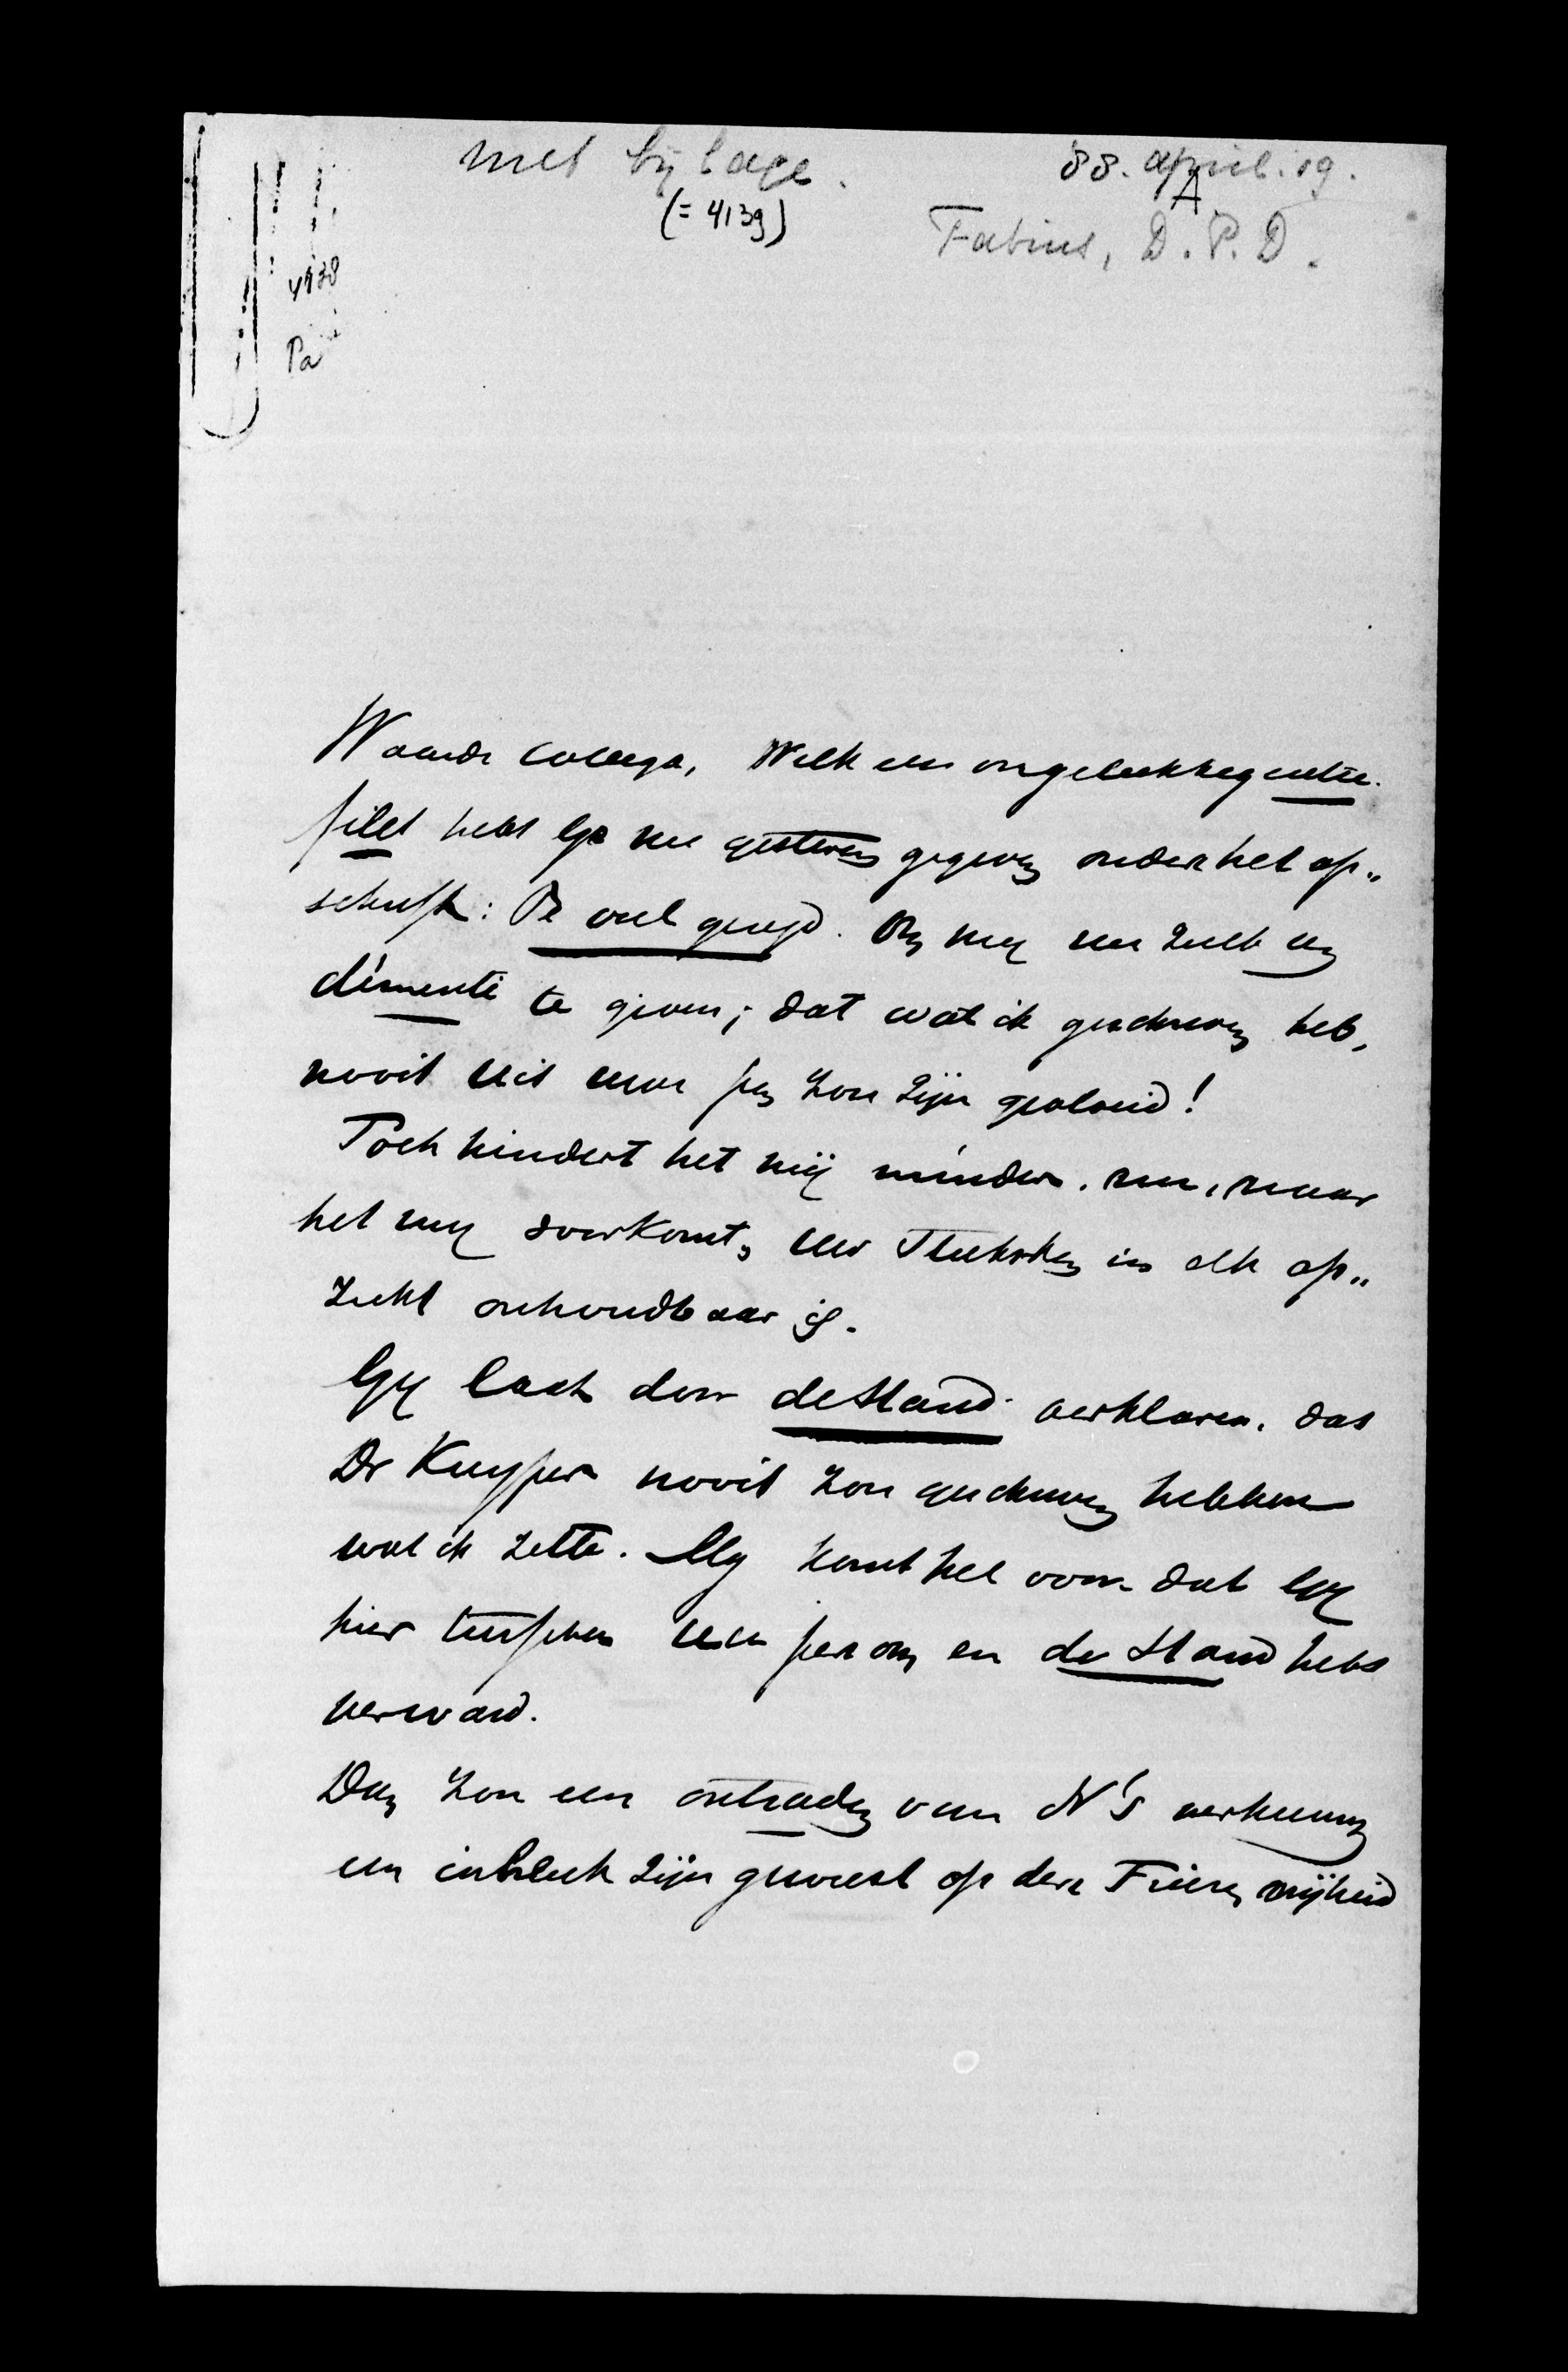 met bijlage.
(= 4139)
'88. april. 19.
A
Fabius, D. P. D.
4138
Pa
Waarde collega, Welk een ongelukkig entre-
filet hebt Gij nu gisteren gegeven onder het op„
schrift: Te veel gezegd. Om mij een zulk een
démenti te geven; dat wat ik geschreven heb,
nooit uit uwe pen zou zijn gevloeid!
Toch hindert het mij minder. nu, naar
het mij voorkomt, uw stukske in elk op„
zicht onhoudbaar is.
Gij laat door de Stand. verklaren, dat
Dr Kuyper nooit zou geschreven hebben
wat ik zette. Mij komt het voor dat Gij
hier tusschen uw persoon en de Stand hebt
verward.
Dan zou een ontraden van N's verkiezing
een inbreuk zijn geweest op der Friezen vrijheid